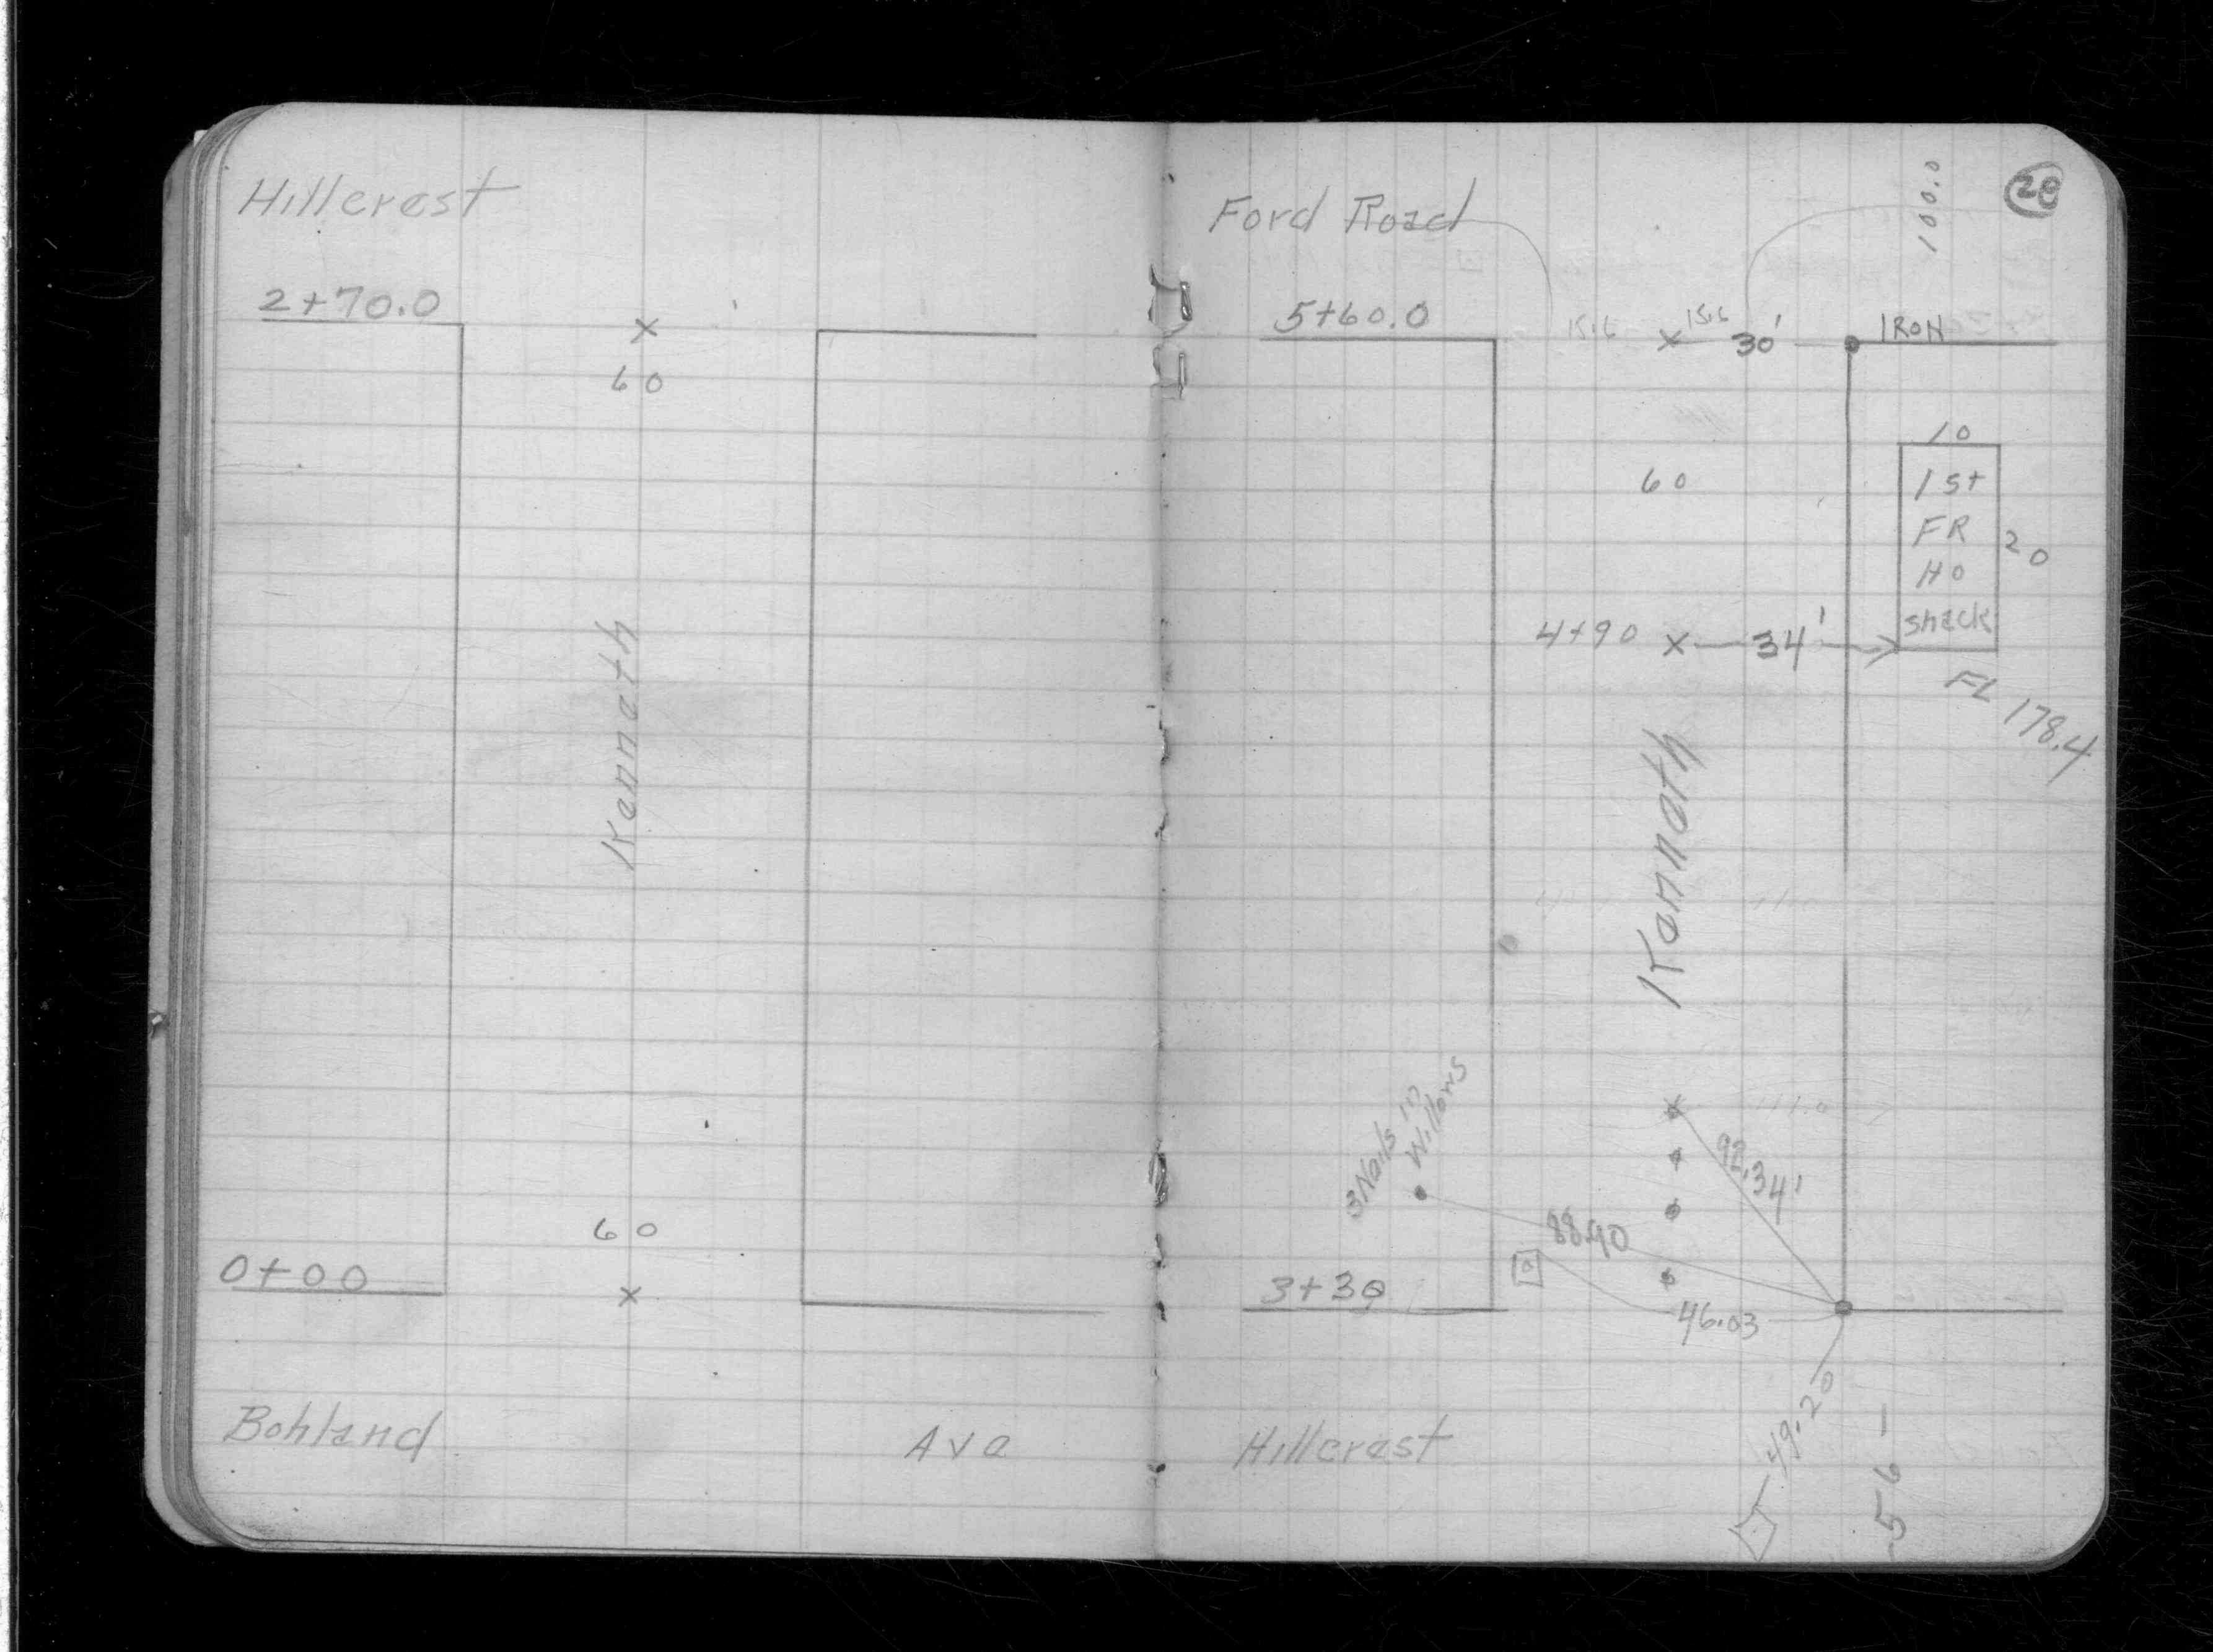 Hillcrest
2+70.0
60
Kenneth
60
0+00
Bohland Ave
28
Ford Road
100.0
5+60.0
15.6
15.6
30'
IRON
60
10
1 St
FR
Ho
shack
20
4+90
34'
FL 178.4
Kenneth
3 Nails in
Willows
92.34'
88.90
3+30
46.03
49.20
56
Hillcrest